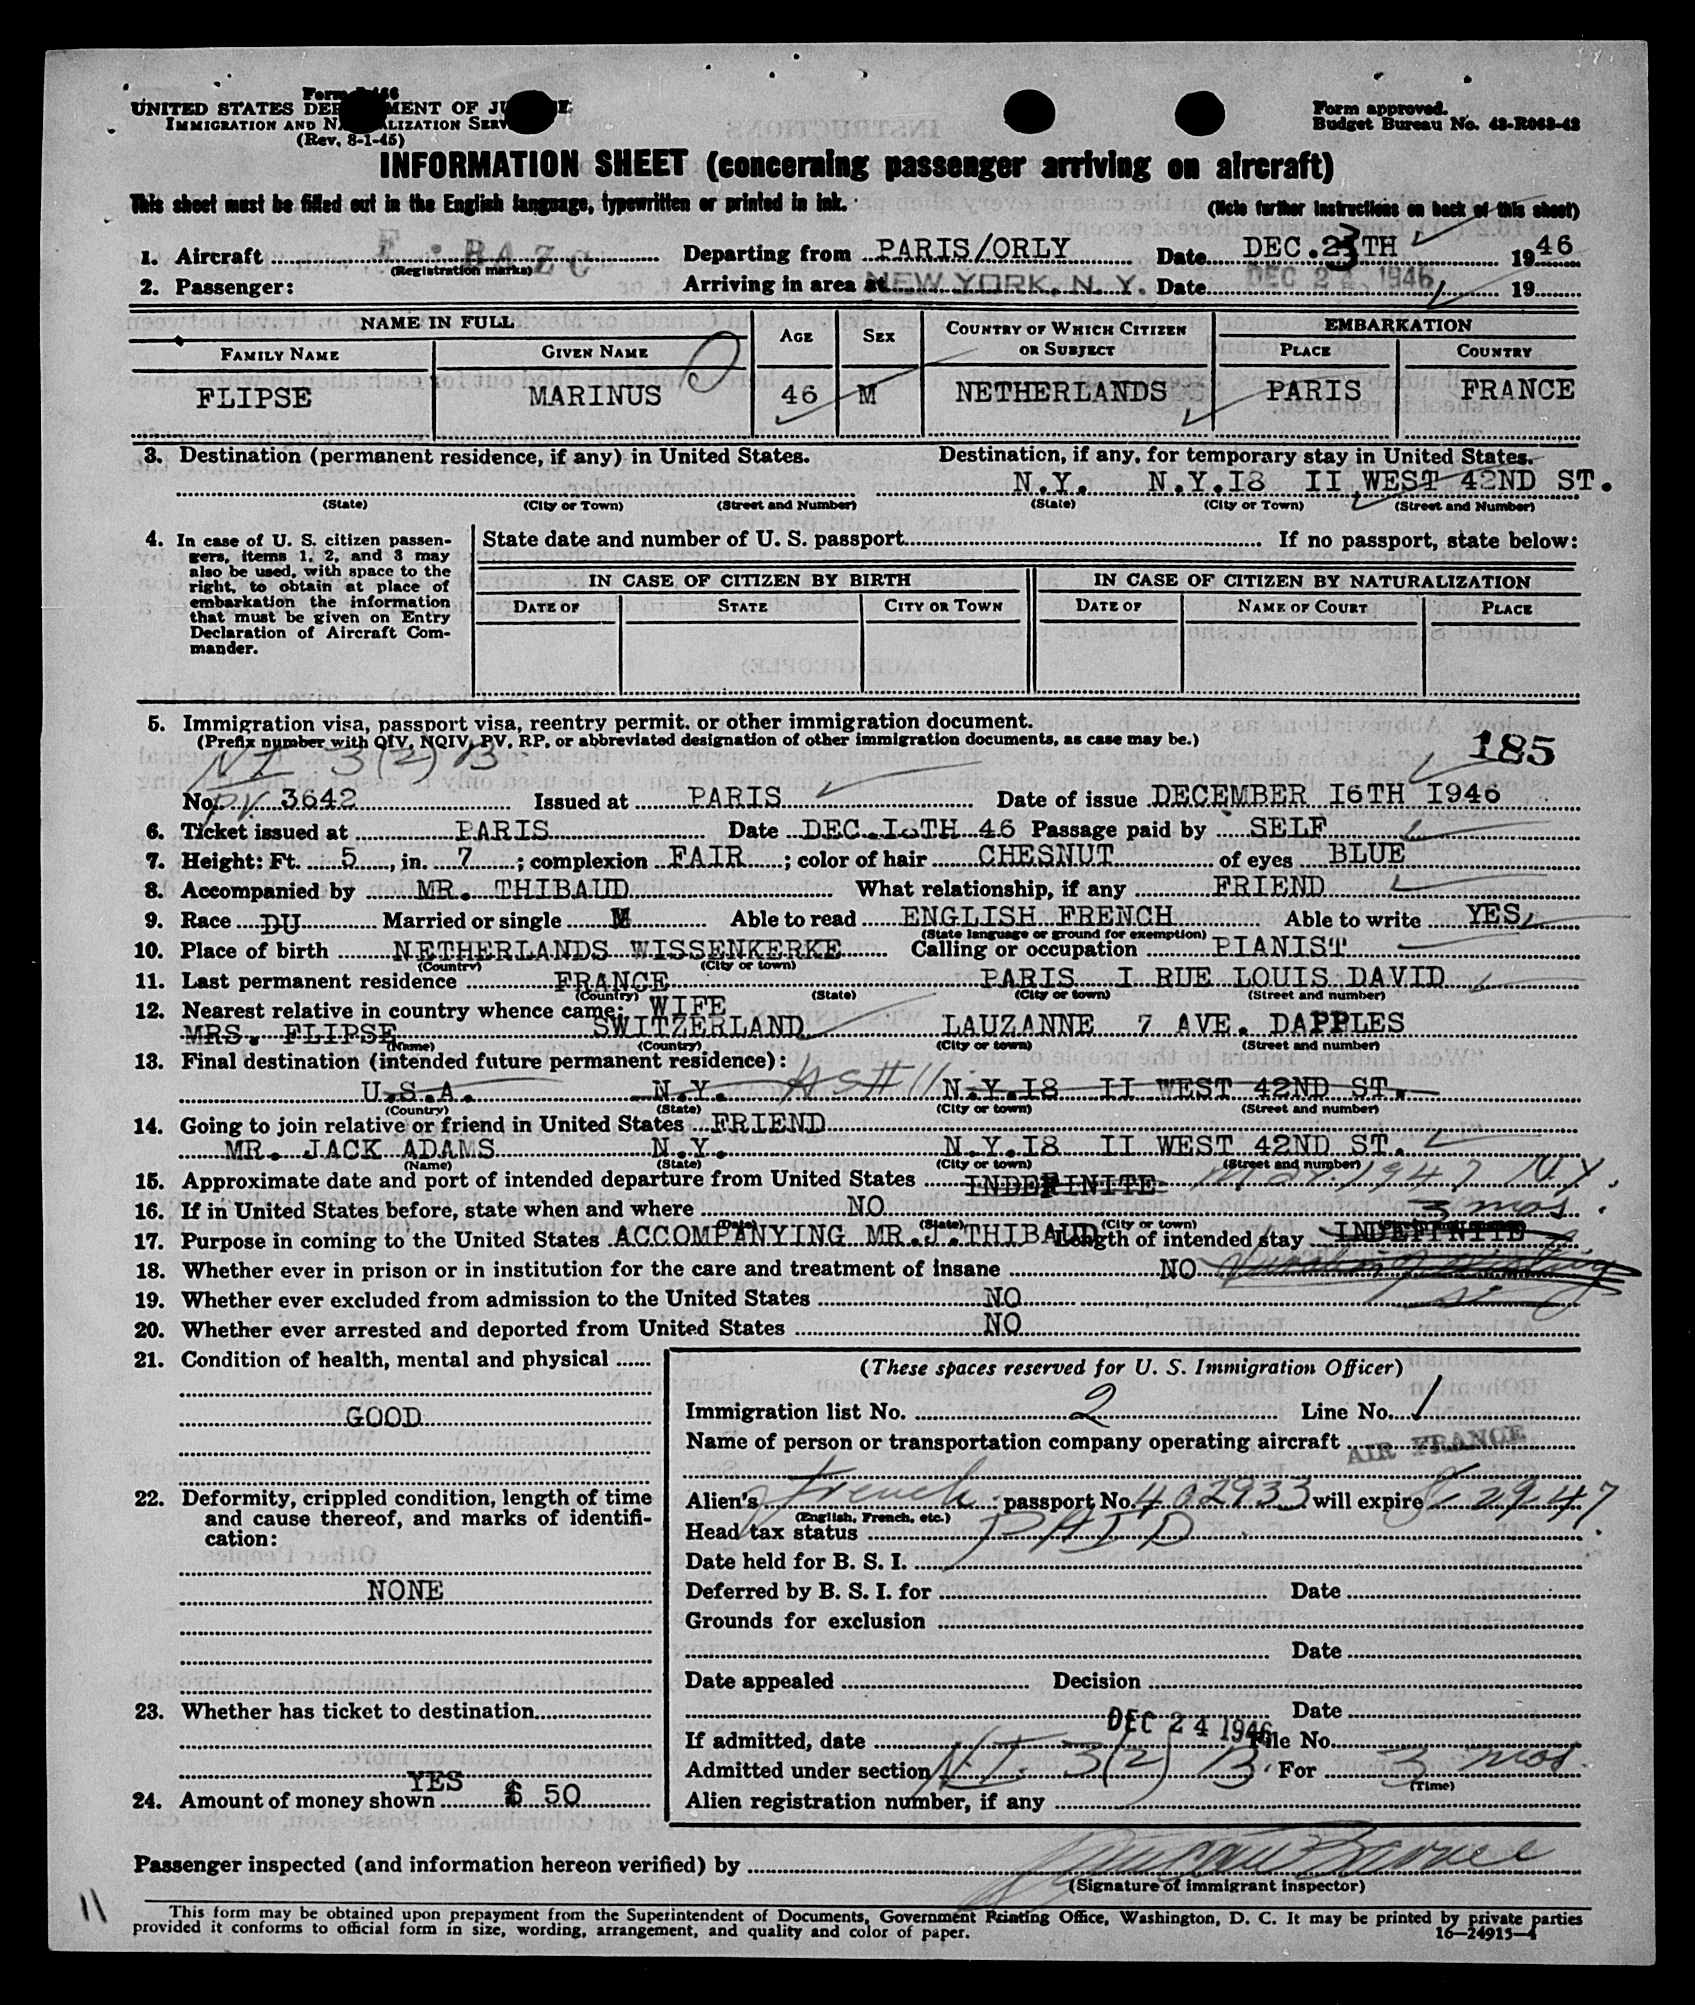 Form I-466
UNITED STATES DEPARTMENT OF JUSTICE
IMMIGRATION AND NATURALIZATION SERVICE
(Rev. 8-1-45)
Form approved.
Budget Bureau No. 43-R063-42
INFORMATION SHEET (concerning passenger arriving on aircraft)
This sheet must be filled out in the English language, typewritten or printed in ink. (Note further instructions on back of this sheet)
1. Aircraft F.BAZC Departing from PARIS/ORLY Date DEC.23TH 1946
(Registration marks)
2. Passenger: Arriving in area at NEW YORK, N. Y. Date DEC 24 1946 19
NAME IN FULL AGE SEX COUNTRY OF WHICH CITIZEN OR SUBJECT EMBARKATION
FAMILY NAME GIVEN NAME PLACE COUNTRY
FLIPSE MARINUS 46 M NETHERLANDS PARIS FRANCE
3. Destination (permanent residence, if any) in United States. Destination, if any, for temporary stay in United States.
N.Y. N.Y.I8 II WEST 42ND ST.
(State) (City or Town) (Street and Number) (State) (City or Town) (Street and Number)
4. In case of U. S. citizen passengers, items 1, 2, and 3 may also be used, with space to the right, to obtain at place of embarkation the information that must be given on Entry Declaration of Aircraft Commander.
State date and number of U. S. passport If no passport, state below:
IN CASE OF CITIZEN BY BIRTH IN CASE OF CITIZEN BY NATURALIZATION
DATE OF STATE CITY OR TOWN DATE OF NAME OF COURT PLACE
5. Immigration visa, passport visa, reentry permit, or other immigration document.
(Prefix number with QIV, NQIV, PV, RP, or abbreviated designation of other immigration documents, as case may be.)
NI 3(2) B 185
No. P.V. 3642 Issued at PARIS Date of issue DECEMBER I6TH I946
6. Ticket issued at PARIS Date DEC. TH 46 Passage paid by SELF
7. Height: Ft. 5, in. 7; complexion FAIR; color of hair CHESNUT of eyes BLUE
8. Accompanied by MR. THIBAUD What relationship, if any FRIEND
9. Race DU Married or single M Able to read ENGLISH FRENCH Able to write YES
(State language or ground for exemption)
10. Place of birth NETHERLANDS WISSENKERKE Calling or occupation PIANIST
(Country) (City or town)
11. Last permanent residence FRANCE PARIS I RUE LOUIS DAVID
(Country) (State) (City or town) (Street and number)
12. Nearest relative in country whence came: WIFE
MRS. FLIPSE SWITZERLAND LAUZANNE 7 AVE. DAPPLES
(Name) (Country) (City or town) (Street and number)
13. Final destination (intended future permanent residence):
U.S.A. N.Y. AS # 11 N.Y.I8 II WEST 42ND ST.
(Country) (State) (City or town) (Street and number)
14. Going to join relative or friend in United States FRIEND
MR. JACK ADAMS N.Y. N.Y.I8 II WEST 42ND ST.
(Name) (State) (City or town) (Street and number)
15. Approximate date and port of intended departure from United States INDEFINITE Mar. 1947 N.Y.
16. If in United States before, state when and where NO 3 mos.
(Date) (State) (City or town)
17. Purpose in coming to the United States ACCOMPANYING MR.J.THIBAUD Length of intended stay INDEFINITE
18. Whether ever in prison or in institution for the care and treatment of insane NO
19. Whether ever excluded from admission to the United States NO
20. Whether ever arrested and deported from United States NO
21. Condition of health, mental and physical
GOOD
22. Deformity, crippled condition, length of time and cause thereof, and marks of identification:
NONE
23. Whether has ticket to destination
YES
24. Amount of money shown $ 50
(These spaces reserved for U. S. Immigration Officer)
Immigration list No. 2 Line No. 1
Name of person or transportation company operating aircraft AIR FRANCE
Alien's French passport No. 402933 will expire 8-29-47
(English, French, etc.)
Head tax status PAID
Date held for B. S. I.
Deferred by B. S. I. for Date
Grounds for exclusion
Date
Date appealed Decision
Date
If admitted, date DEC 24 1946 File No.
Admitted under section N.I. 3(2) B. For 3 mos.
(Time)
Alien registration number, if any
Passenger inspected (and information hereon verified) by
(Signature of immigrant inspector)
11
This form may be obtained upon prepayment from the Superintendent of Documents, Government Printing Office, Washington, D. C. It may be printed by private parties
provided it conforms to official form in size, wording, arrangement, and quality and color of paper. 16—24915-1